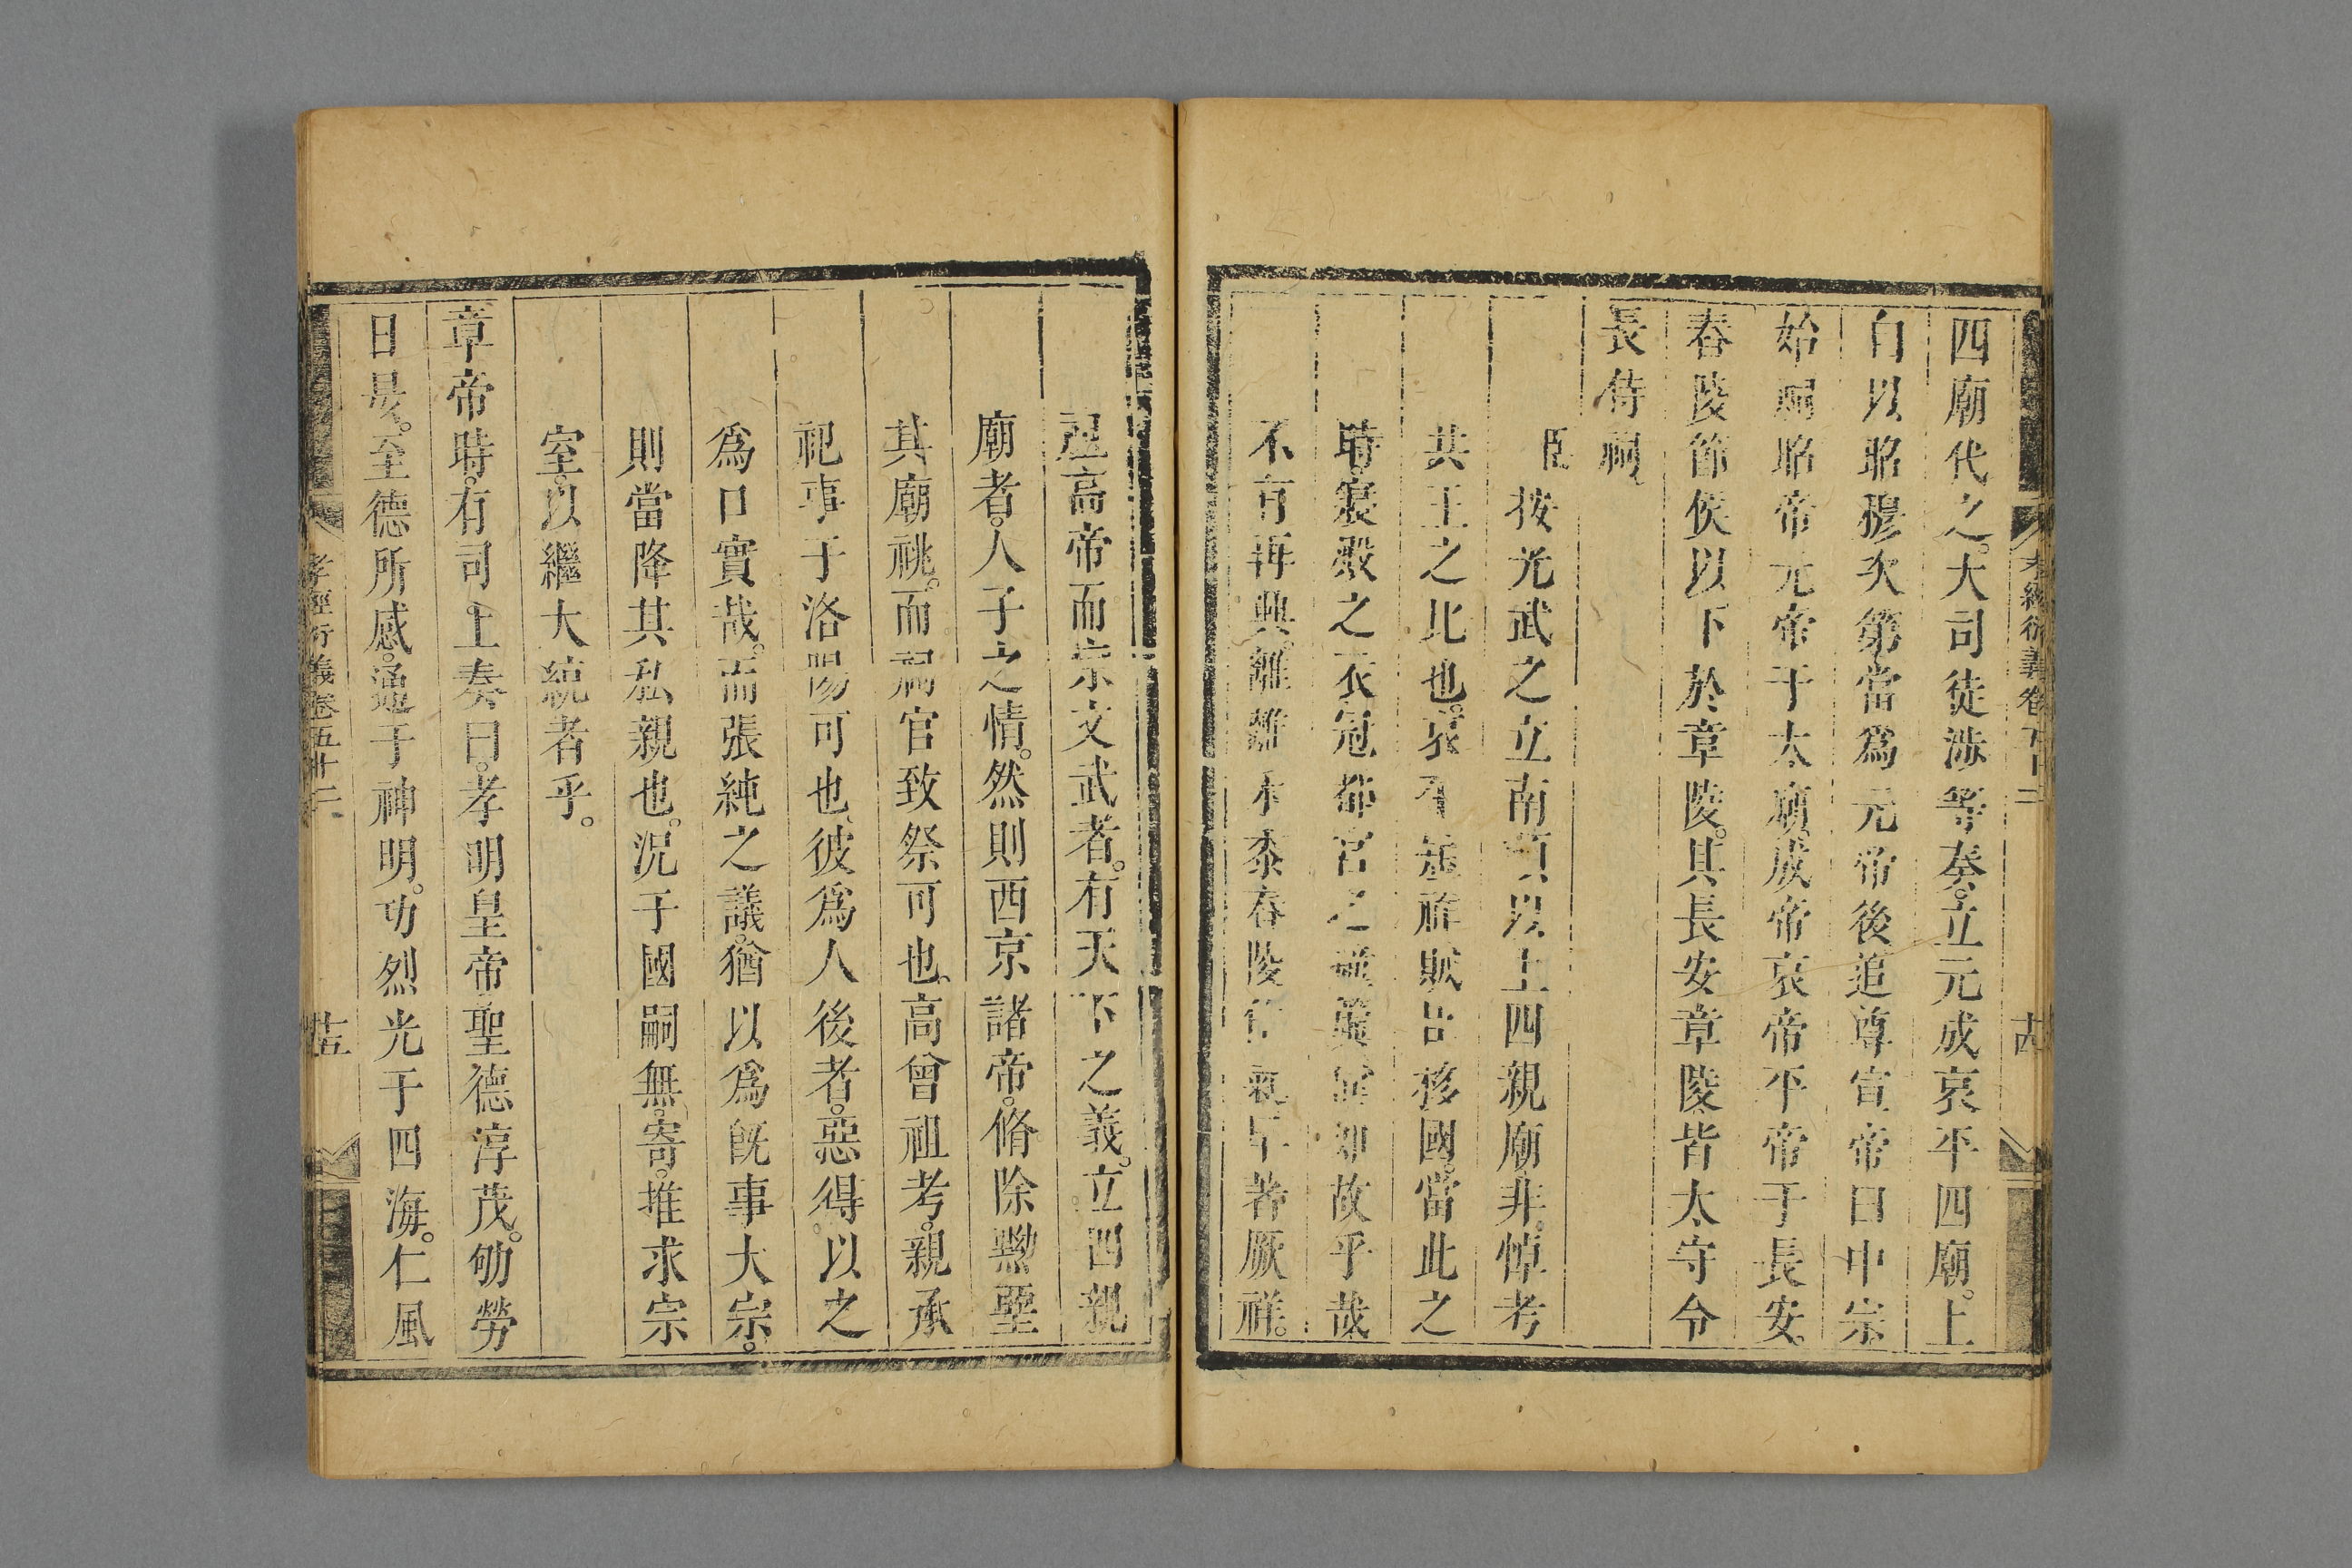 四廟代之。大司徒涉等奏。立元成哀平四廟。上
自以昭穆次第。當爲元帝後。追尊宣帝曰中宗。
始祠昭帝元帝于太廟。成帝哀帝平帝于長安。
舂陵節侯以下於章陵。其長安章陵。皆太守令
長侍祠。
臣按光武之立南頓以上四親廟。非悼考
共王之比也。哀平短祚。賊臣移國。當此之
時。寢殿之衣冠。都宮之 即故乎哉。
不有再興。離離禾黍。舂陵 氣早著厥祥。
祖高帝而宗文武者。有天下之義。立四親
廟者。人子之情。然則西京諸帝。脩除黝堊
其廟祧。而祠官致祭可也。高曾祖考。親承
祀事于洛陽可也。彼爲人後者。惡得以之
爲口實哉。而張純之議。猶以爲旣事大宗。
則當降其私親也。況于國嗣無寄。推求宗
室。以繼大統者乎。
章帝時。有司上奏曰。孝明皇帝聖德淳茂。劬勞
日昃。至德所感。通于神明。功烈光于四海。仁風
孝經衍義卷五十二
十四
孝經衍義卷五十二
十五